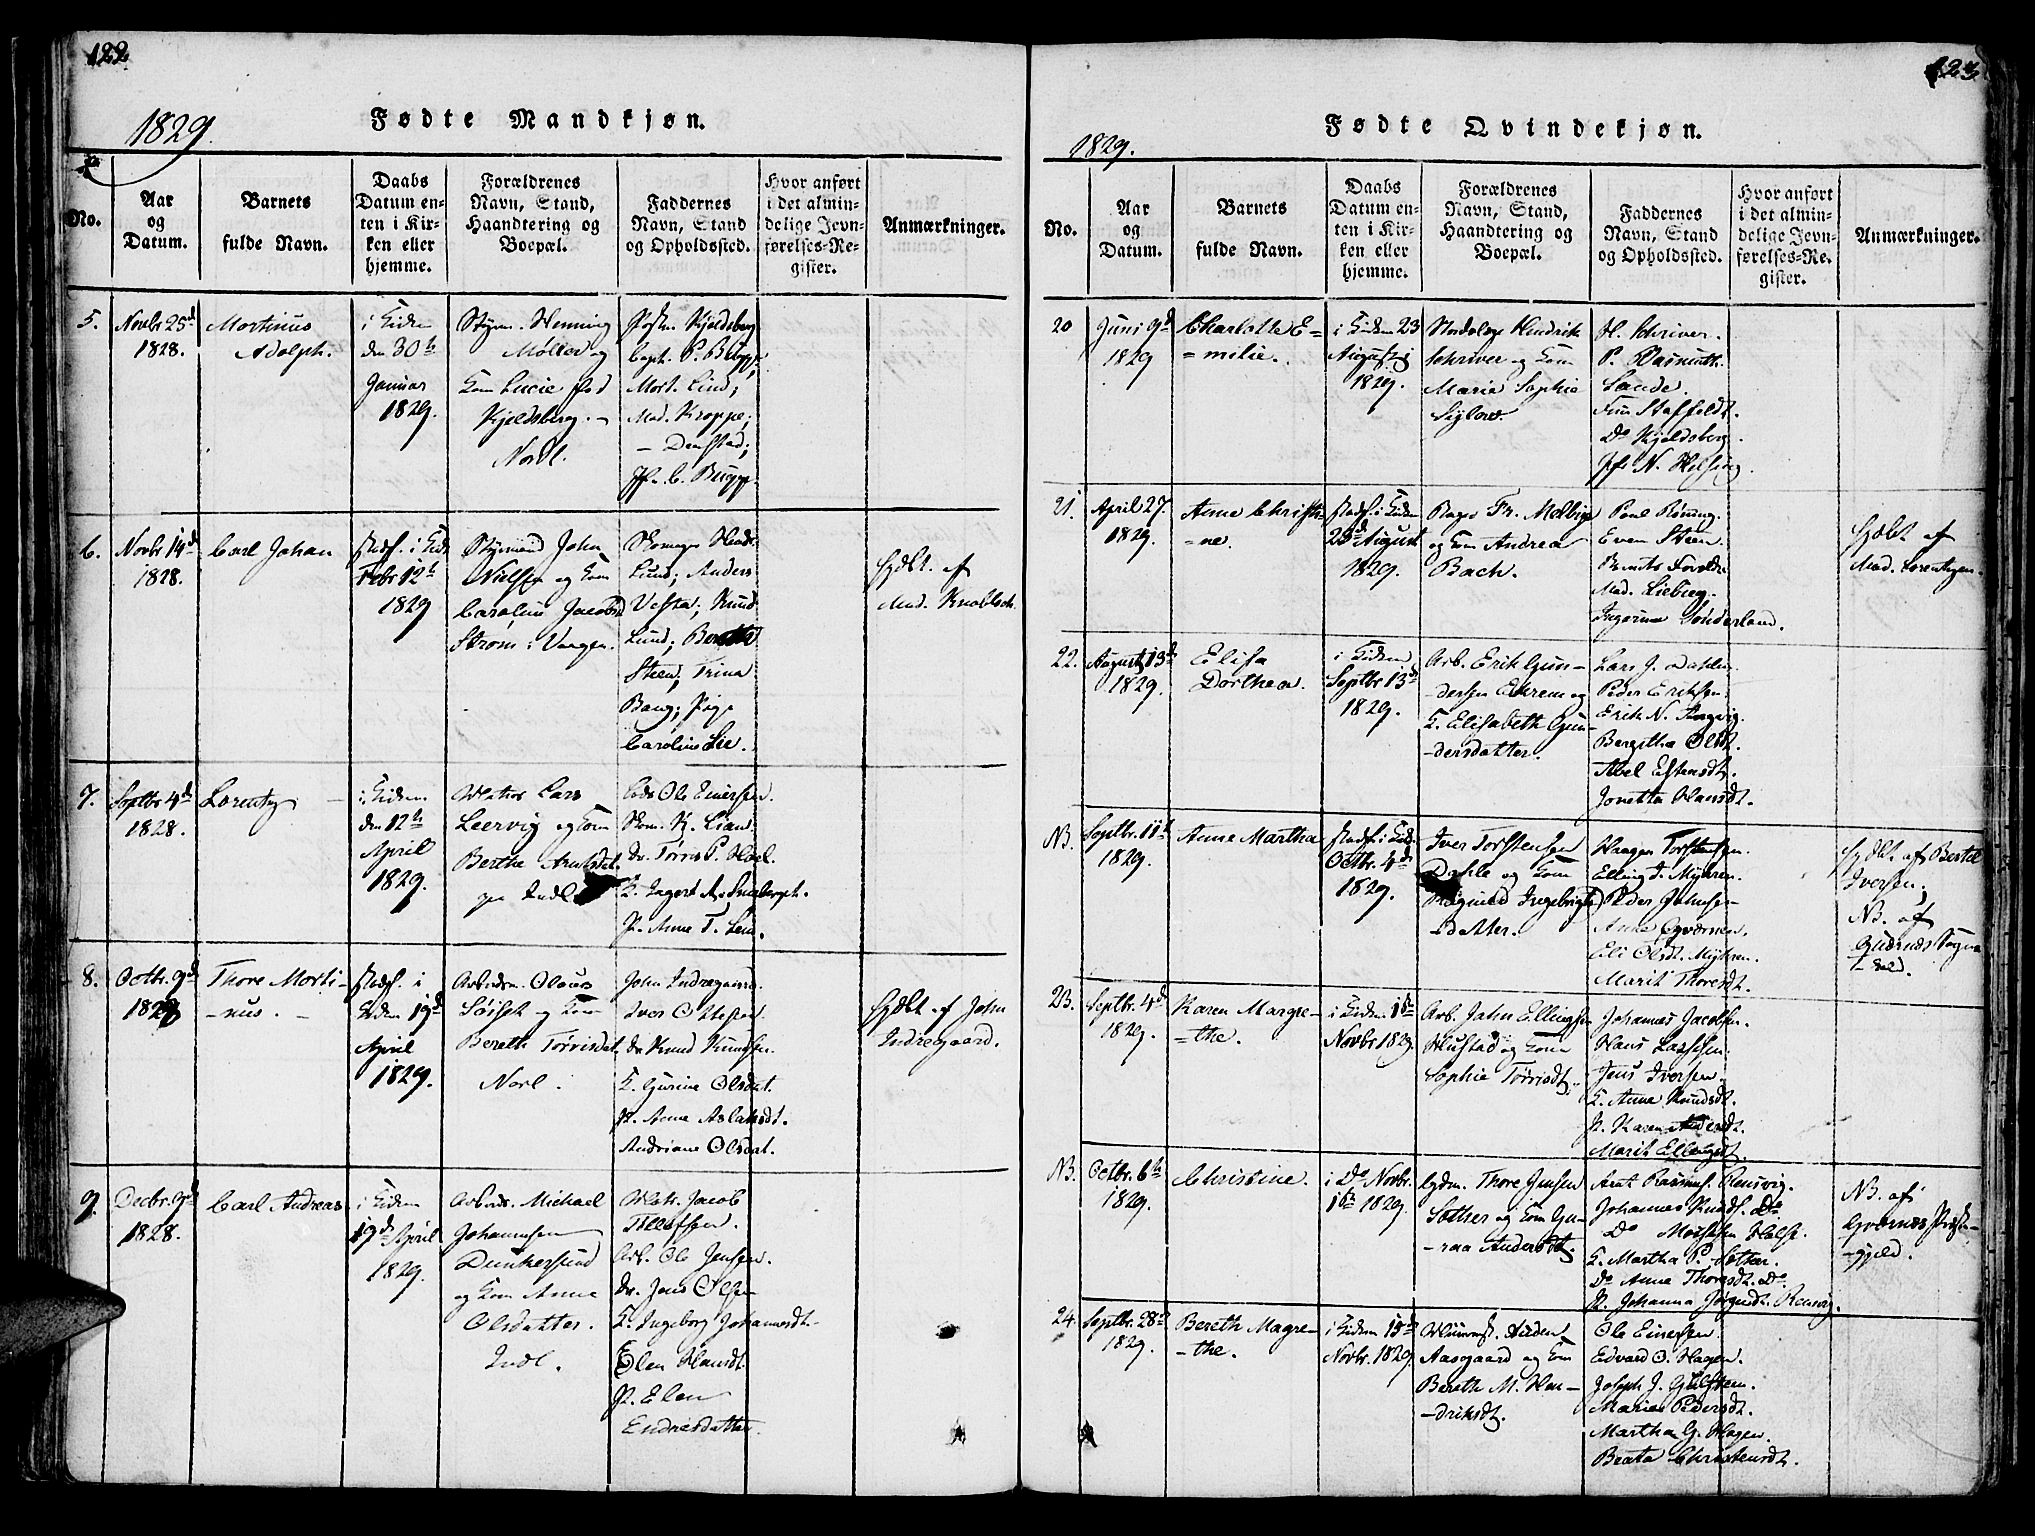 122
1829.
Fødte Mandkjøn.
No.
Aar
og
Datum.
Barnets
fulde Navn.
Daabs
Datum en-
ten i Kir-
ken eller
hjemme.
Forældrenes
Navn, Stand,
Haandtering og
Boepæl.
Faddernes
Navn, Stand
og Opholdssted.
Hvor anført
i det almin-
delige Jevn-
førelses-Re-
gister.
Anmærkninger.
5.
Novbr 25d
1828.
Mortinus
Adolph.
i Kirken
den 30te
Januar
1829.
Styrm. Henning
Møller og
Kone Lucie fød
Kjeldsberg.
Nordl.
Kjeldsberg
Capt. P. Bugge;
Mort. Lind;
Mad. Kroppe;
— Denstad;
Jfr. C. Bugge.
6.
Novbr 14d
1828.
Carl Johan
Febr 12te
1829
Styrmand John
Nielsen og Kone
Caroline Jacobsd.
Strøm i Vaagen.
Lund; Anders
Vefstad; Knud
Lund;
Steen; Trina
Bang; Pige
Caroline Lie.
Hjdbt. af
Mad. Knobloch.
7.
Septbr 4d
1828.
Lorentz
i Kirken
den 12te
April
1829.
Lars
Leervig og Kone
Berthe Arntsdat.
Indl.
Ole Einersen.
K. Lian.
Do Tørris P. Hoel.
P. Anne T. Lem.
8.
Octbr. 9d
1828
Thore Morti-
-nus.
Kirken 19de
April
1829.
Arbeidsm. Olaus
og Kone
Bereth Tørrisdat.
Nordl.
John Indregaard.
Iver Ottesen.
Do Knud Knudsen.
K. Gurine Olsdat.
P. Anne Aslaksdt.
Andriane Olsdat.
Hjdbt. af John
Indregaard.
9.
Decbr. 9d
1828.
Carl Andreas
i Kirken
19de April
1829.
Arbeids. Michael
Johannesen
Dunkersund
og Kone Anne
Olsdatter.
Indl.
Jacob
Tellefsen.
Arb. Ole Jensen.
Do. Jens Olsen
K. Ingeborg Johannesdt.
Elen Hansdt.
P. Elen
Endresdatter.
123.
1829.
Fødte Qvindekjøn.
No.
Aar
og
Datum.
Barnets
fulde Navn.
Daabs
Datum en-
ten i Kir-
ken eller
hjemme.
Forældrenes
Navn, Stand,
Haandtering og
Boepæl.
Faddernes
Navn, Stand
og Opholdssted.
Hvor anført
i det almin-
delige Jevn-
førelses-Re-
gister.
Anmærkninger.
20
Juni 9d
1829
Charlotte E=
=milie.
i Kirken 23
August
1829.
Hendrik
Schriver og Kone
Marie Sophie
H. Schriver.
P. Rasmuth.
Sande.
Fru Staffeldt.
Do Kjeldsberg.
Jfr N. Helsing.
21.
April 27.
1829.
Anne Christi=
=ne.
stadf. i Kirken
23de August
1829.
Bager Fr. Melbye
og Kone Andrea
Bach.
Poul Rønning.
Even Steen.
Mad. Lieberg.
Ingerine Sønderland.
Hjdbt af
Mad. Lorentzen.
22.
August 13d
1829.
Elisa
Dorthea.
i Kirken
Septbr 13de
1829.
Arb. Erik Gun-
-dersen Ekrem og
K. Elisabeth Gun-
-dersdatter.
Lars J. Dahlen.
Peder Eriksen.
Erik N.
Bergitha Olsdt.
Abel Estensdt.
Jonetta Hansdt.
NB.
Septbr. 11te
1829.
Anne Martha
stadf. i Kirken
Octbr. 4de
1829.
Iver Torstensen
Dahle og Kone
Ragnild Ingebrigts
-datter.
Haagen Torstensen.
Elling J. Myhren.
Peder Johnsen
Anne Qværnen.
Eli Olsdt. Myhren.
Marit Thoresdt.
Hjdbt af Bertel
Iversen;
NB. af
Qværnæs Sogne
-kald.
23.
Septbr. 4de
1829.
Karen Margre-
=the.
i Kirken 1ste
Novbr 1829.
Arb. John Ellingsen
Hustad og Kone
Sophie Tørrisdt.
Johannes Jacobsen.
Hans Lassesen.
Jens Iversen.
K. Anne Knudsdt.
P. Karen
Marit Ellingsdt.
NB.
Octbr. 6te
1829.
Christine.
i Do Novbr.
1ste 1829.
Thore Jensen
Sæther og Kone Gu-
-roa Andersdt.
Arnt Rasmus. Rensvig.
Johannes Knuds. Do
Do Halse.
K. Martha P. Sæther.
Do Anne Thoresdt. Do
P. Johanna Jørgensdt. Rensvig.
NB. af
Qværnæs Præste-
-gjeld.
24.
Septbr. 28de
1829.
Bereth Magre-
-the.
i Kirken 15de
Novbr. 1829.
Aasgaard og Kone
Bereth M. Hen-
-driksdt.
Ole Einersen
Edvard O. Hagen.
Joseph J. Gulsteen.
Maries Pedersdt.
Martha G. Hagen.
Beata Christensdt.